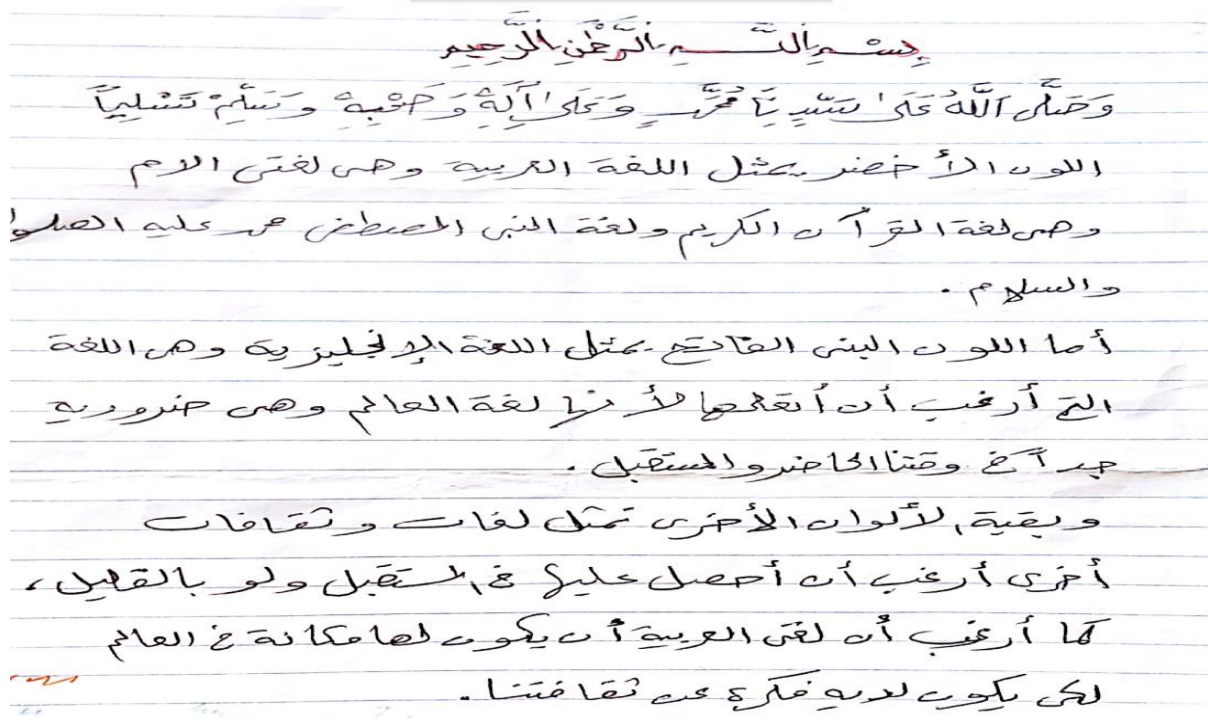 بِسْمِ اللَّهِ الرَّحْمَٰنِ الرَّحِيمِ
وَصَلَّى اللَّهُ عَلَىٰ سَيِّدِنَا مُحَمَّدٍ وَعَلَىٰ آلِهِ وَصَحْبِهِ وَسَلِّمْ تَسْلِيماً
اللون الأخضر يمثل اللغة العربية وهى لغتى الام
وهى لغة القرآن الكريم ولغة النبى المصطفى محمد عليه الصلوا
والسلام .
أما اللون البنى الفاتح يمثل اللغة الإنجليزية وهى اللغة
التى أرغب أن أتعلمها لأنها لغة العالم وهى ضرورية
جداً فى وقتنا الحاضر والمستقبل .
وبقية الألوان الأخرى تمثل لغات وثقافات
أخرى أرغب أن أحصل عليها فى المستقبل ولو بالقليل ،
كما أرغب أن لغتى العربية أن يكون لها مكانة فى العالم
لكى يكون لديه فكرة عن ثقافتنا .